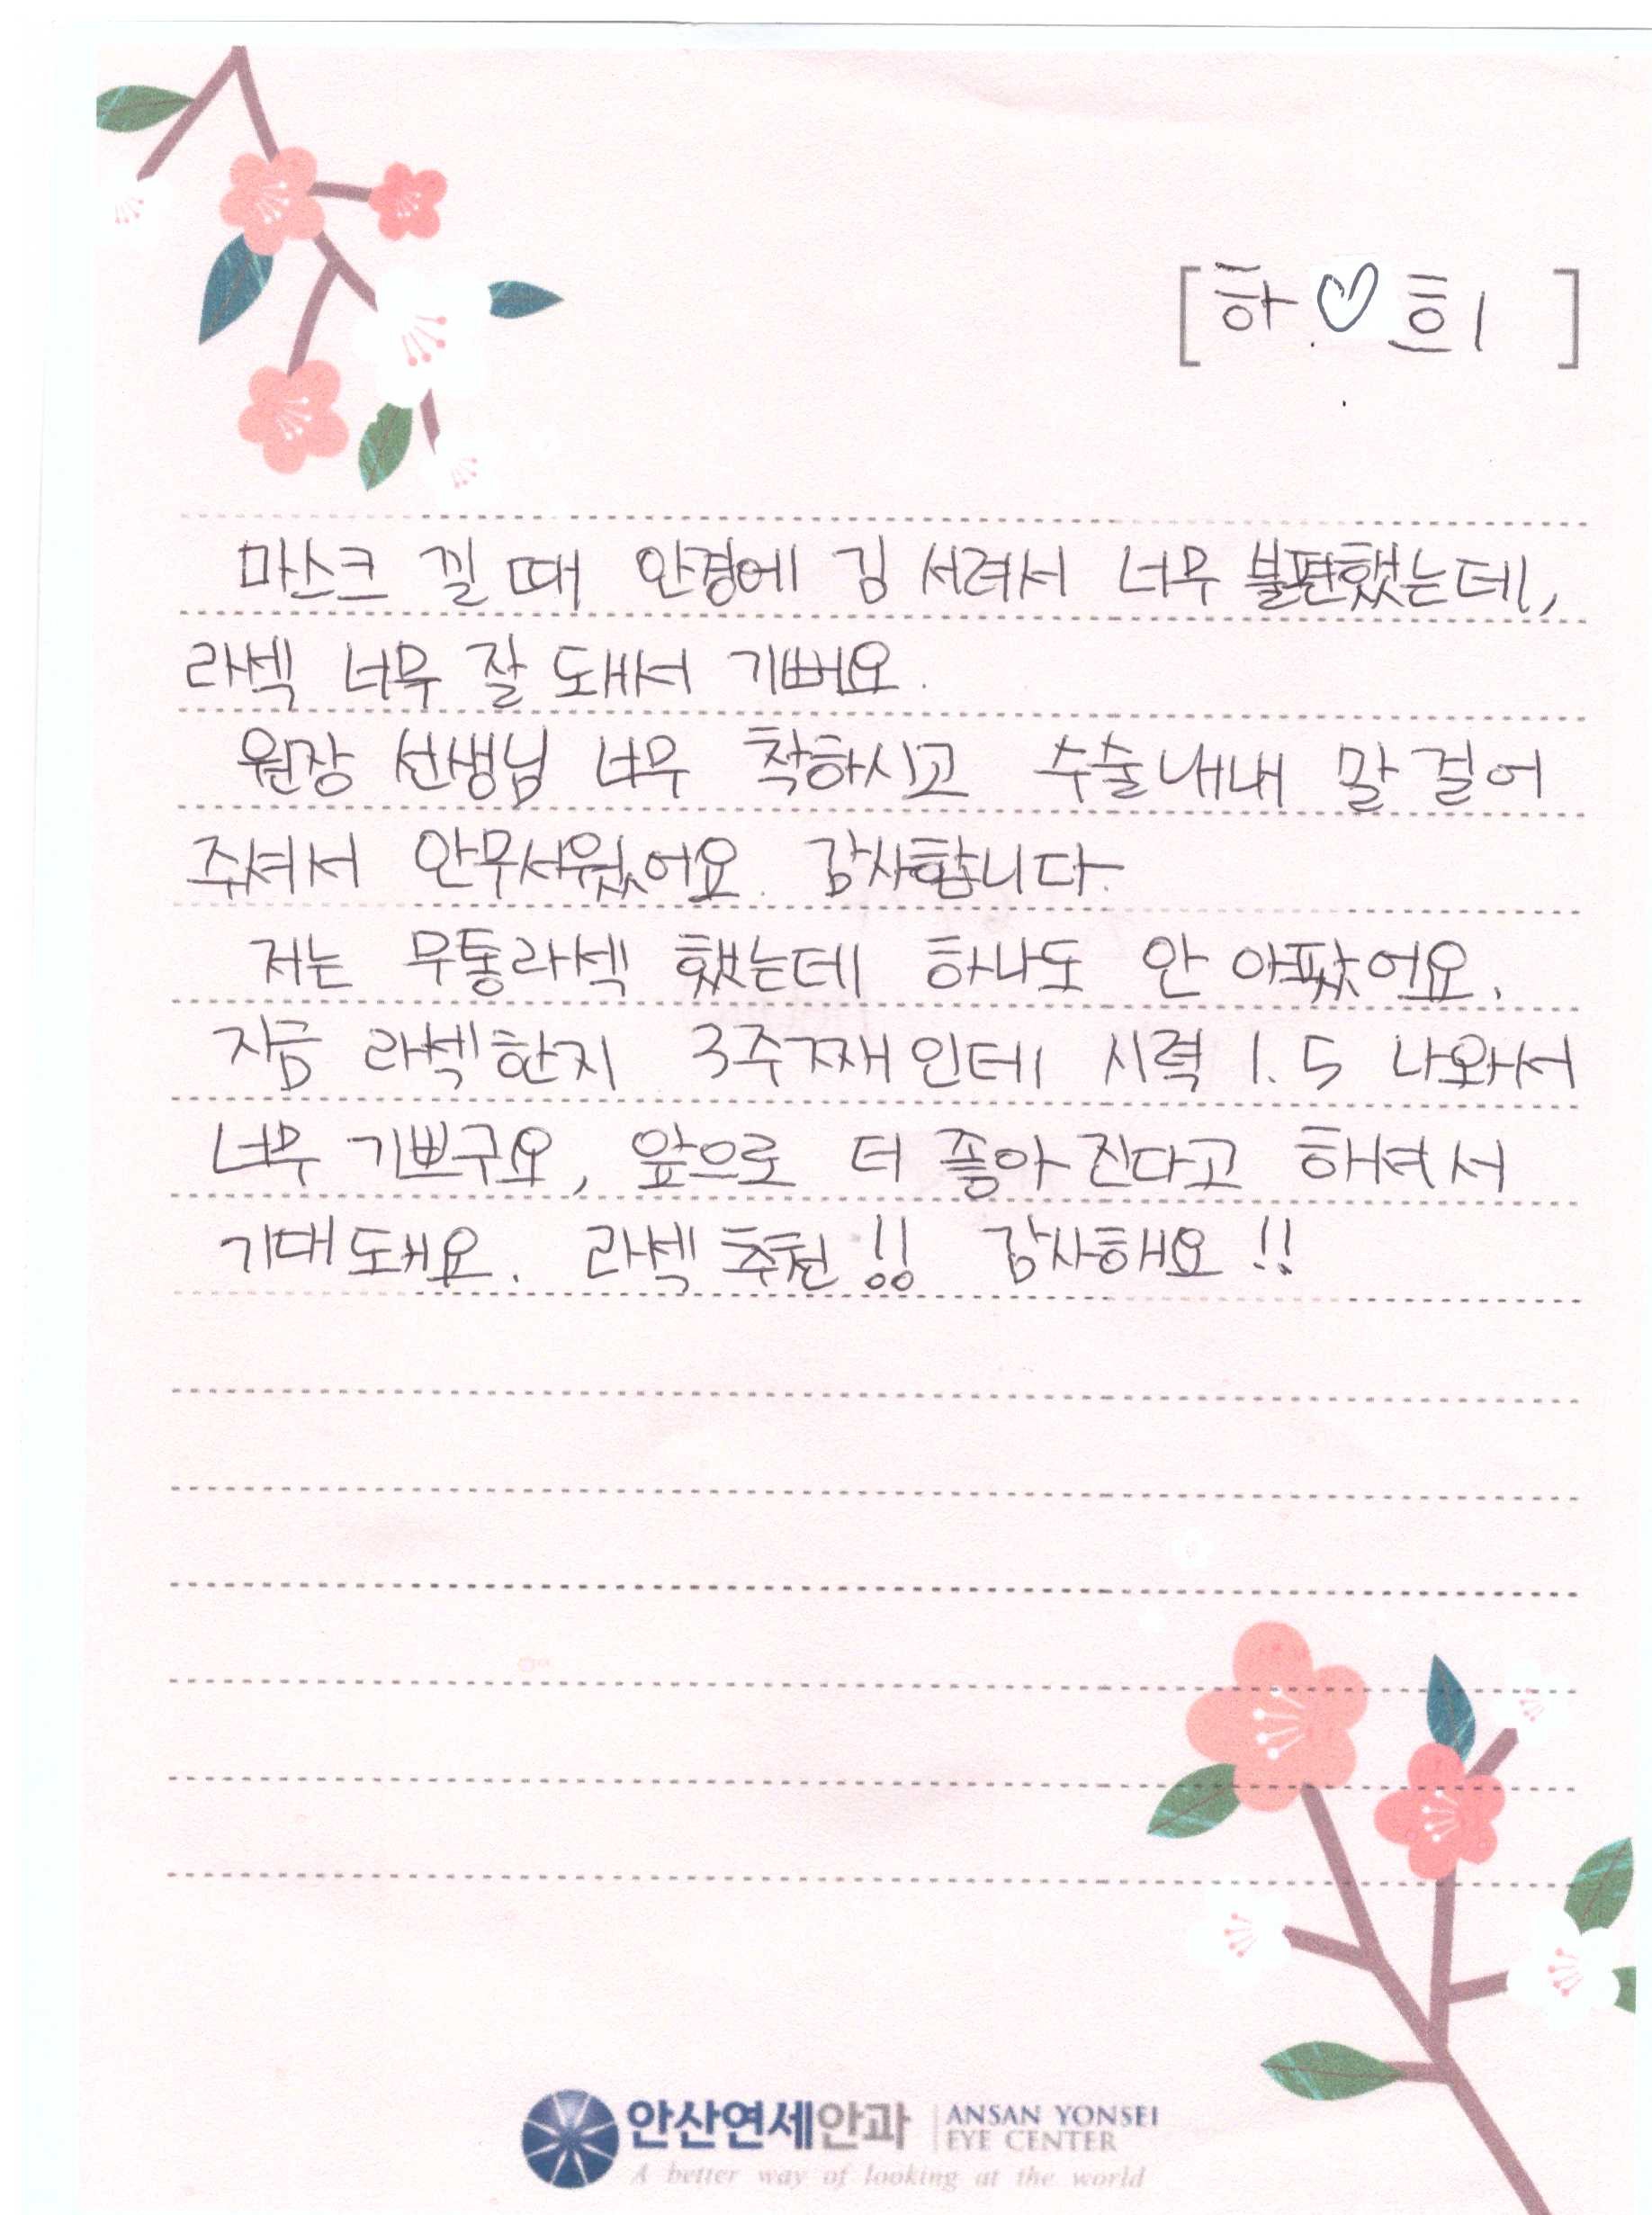 [하♡희]
마스크 낄 때 안경에 김 서려서 너무 불편했는데,
라섹 너무 잘 돼서 기뻐요.
원장 선생님 너무 착하시고 수술내내 말 걸어
주셔서 안무서웠어요. 감사합니다.
저는 무통라섹 했는데 하나도 안 아팠어요.
지금 라섹한지 3주째인데 시력 1.5 나와서
너무 기쁘구요, 앞으로 더 좋아진다고 하셔서
기대돼요. 라섹 추천!! 감사해요!!
안산연세안과 ANSAN YONSEI
EYE CENTER
A better way of looking at the world